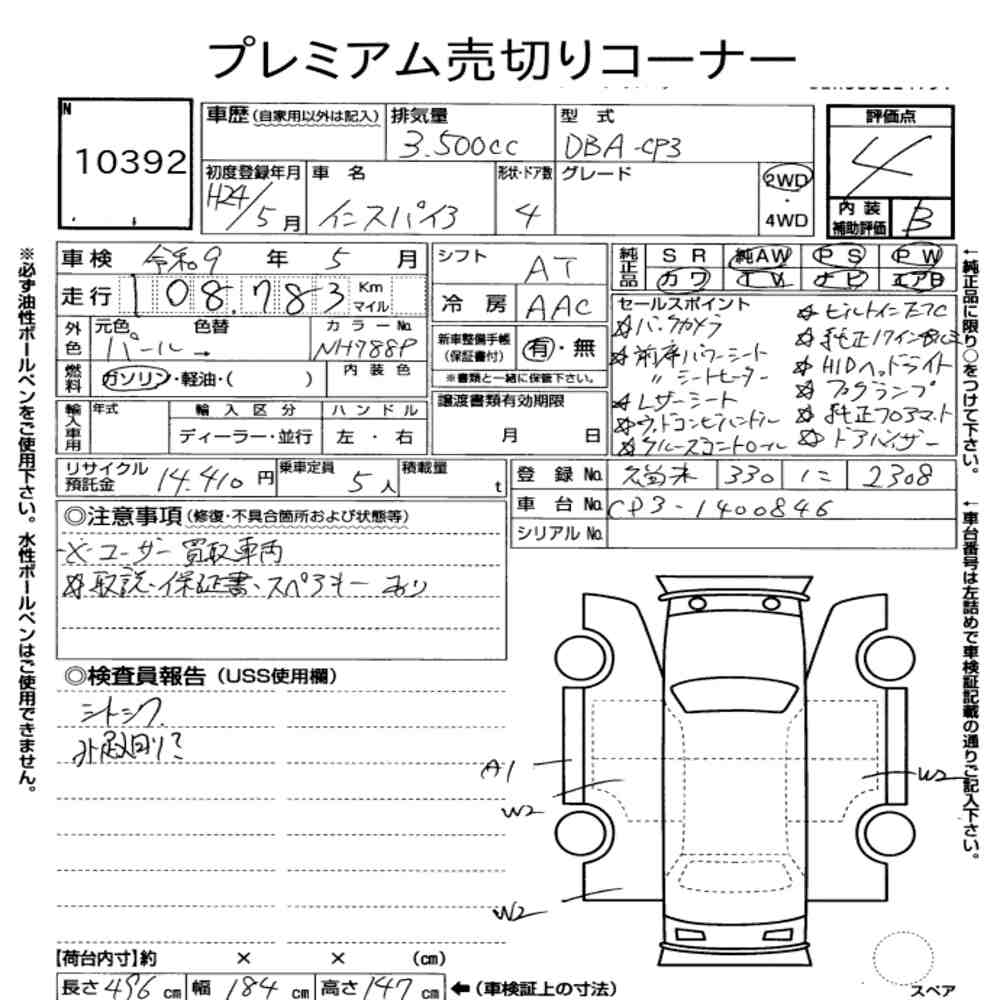 プレミアム売切りコーナー
N
10392
車歴(自家用以外は記入)
排気量
3.500cc
型式
DBA-CP3
評価点
4
初度登録年月
H24/5月
車名
インスパイア
形状・ドア数
4
グレード
2WD
・
4WD
内装
補助評価
B
車検 令和9年5月
走行 108.783 Km マイル
外色
元色
パール
色替
→
カラーNo.
NH788P
燃料
ガソリン・軽油・( )
内装色
輸入車用
年式
輸入区分
ディーラー・並行
ハンドル
左・右
シフト
AT
冷房
AAC
新車整備手帳
(保証書付)
有・無
※書類と一緒に保管下さい。
譲渡書類有効期限
月 日
純正品
SR 純AW PS PW
カワ TV ナビ エアB
セールスポイント
☆バックカメラ
☆前席パワーシート
☆〃シートヒーター
☆レザーシート
☆ウッドコンビハンドル
☆クルーズコントロール
☆ビルトインETC
☆純正17インチアルミ
☆HIDヘッドライト
☆フォグランプ
☆純正フロアマット
☆ドアバイザー
リサイクル
預託金
14.410円
乗車定員
5人
積載量
t
登録No.
330
2308
車台No.
CP3-1400846
シリアルNo.
◎注意事項(修復・不具合箇所および状態等)
☆ユーザー買取車両
☆取説・保証書・スペアキーあり
◎検査員報告(USS使用欄)
A1
W2
W2
W2
【荷台内寸】約 × × (cm)
長さ496cm 幅184cm 高さ147cm ←(車検証上の寸法)
スペア
※必ず油性ボールペンをご使用下さい。水性ボールペンはご使用できません。
←純正品に限り○をつけて下さい。
←車台番号は左詰めで車検証記載の通りご記入下さい。